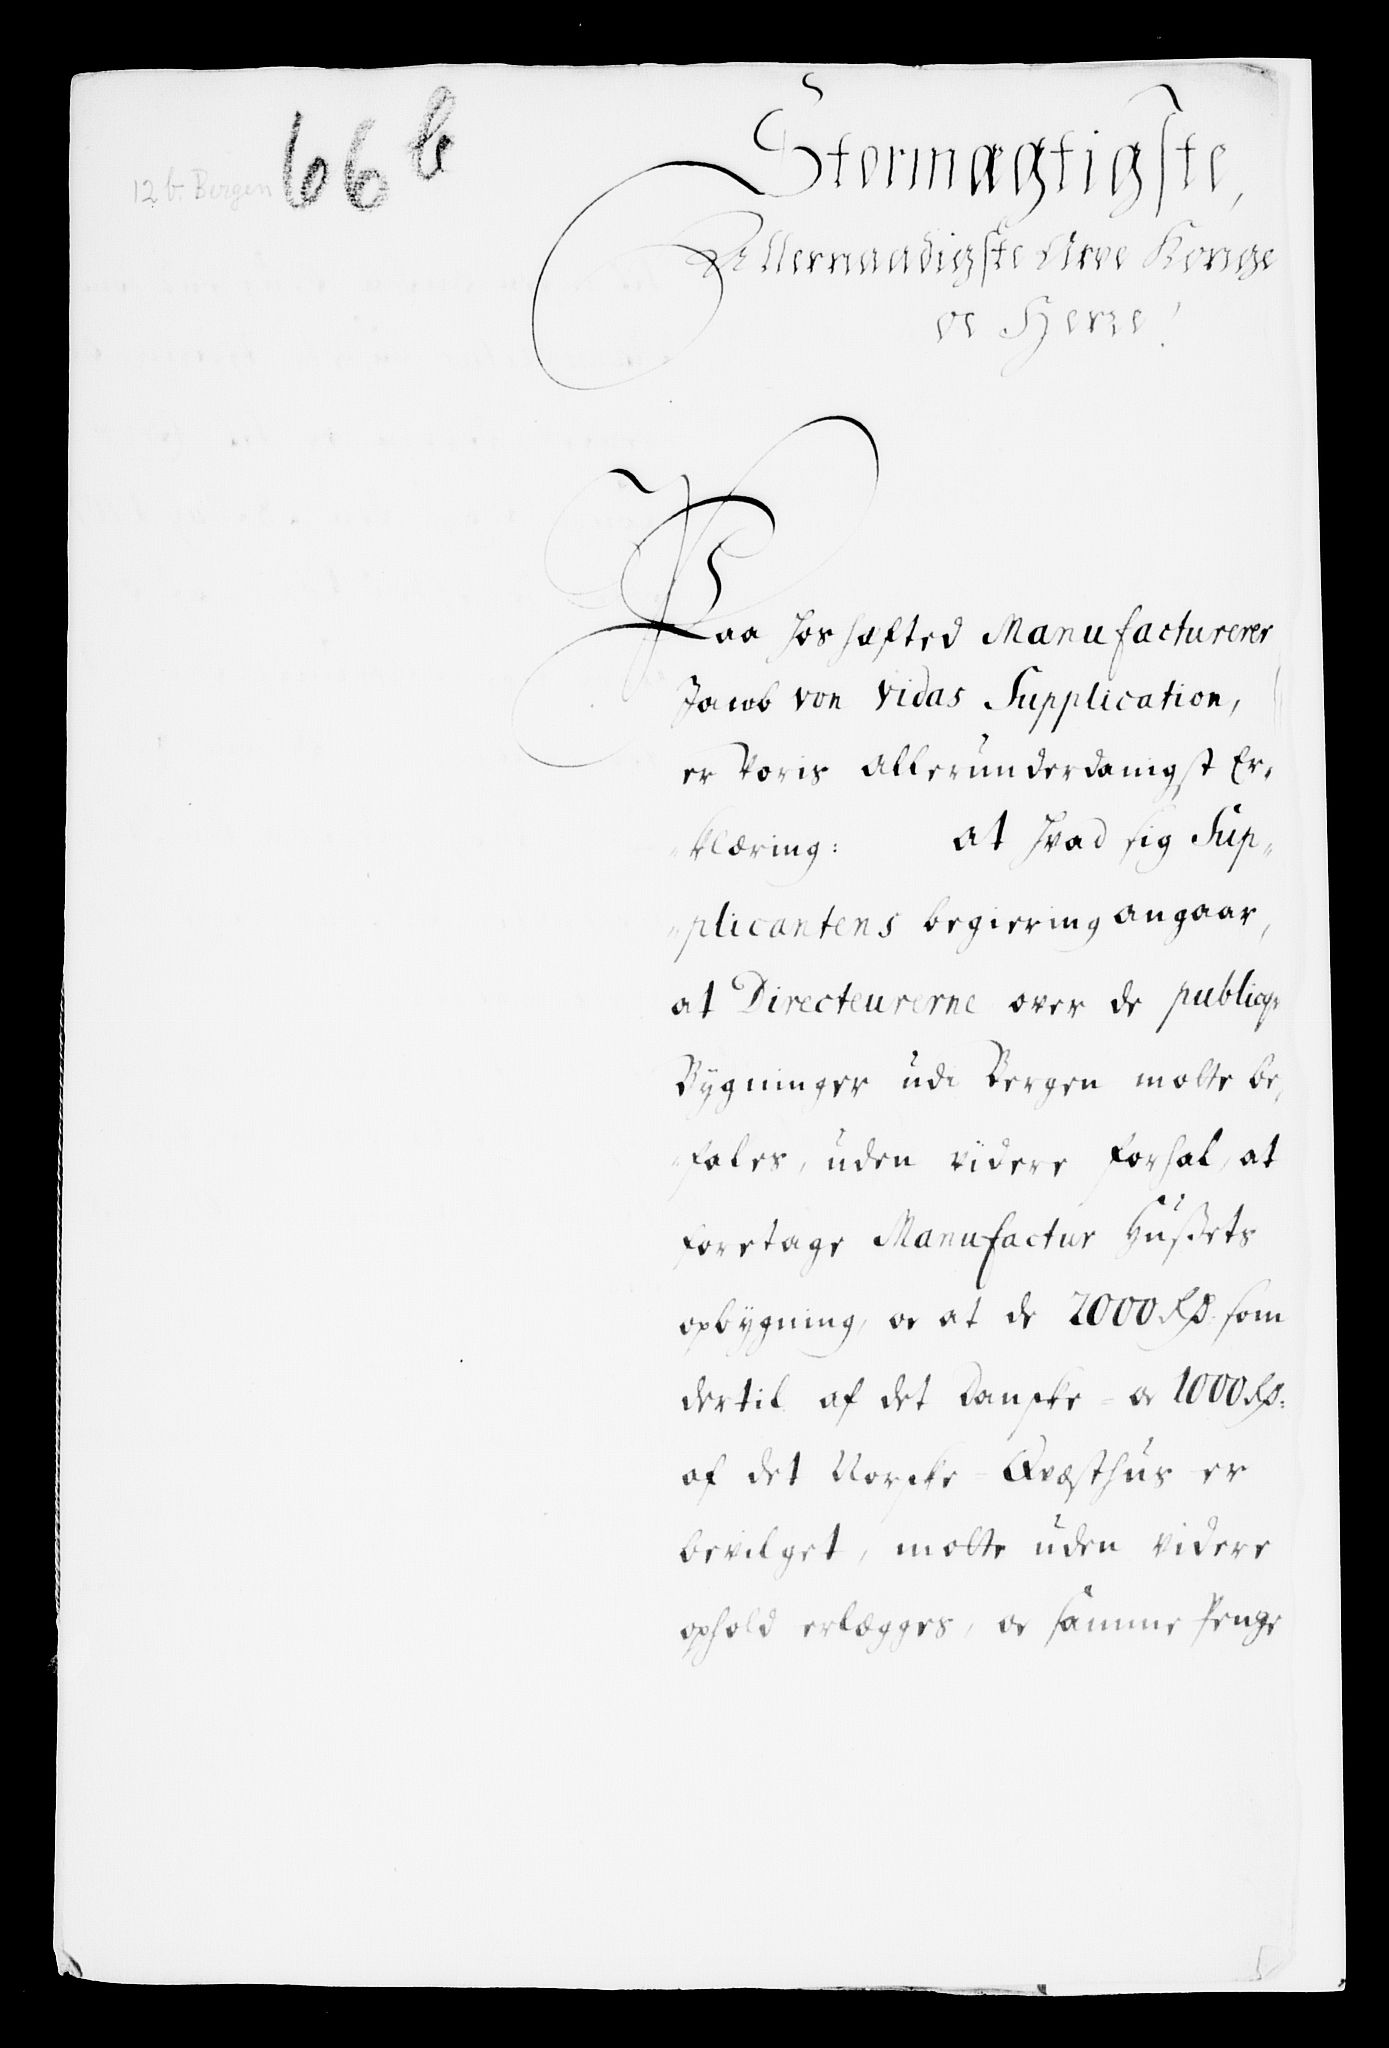 66b
12 b. Bergen
Stormægtigste,
Allernaadigste Arve Konge
oc Herre!
Paa hoshæfted Manufacturerer
Jacob von Vidas Supplication,
er Voris allerunderdanigst Er-
klæring: at hvad sig Sup-
plicantens begiering angaar,
at Directeurerne over de publiqve
Bygninger udi Bergen motte be-
fales, uden videre forhal, at
foretage Manufactur Hußets
opbygning, oc at de 2000 Rd. som
dertil af det Danske - oc 1000 Rd:
af det Norske - Qvæsthus er
bevilget, motte uden videre
ophold erlægges, oc samme Penge